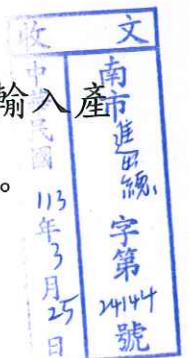 輸入產
。
收文
南市進 字第24144號
中華民國113年3月25日